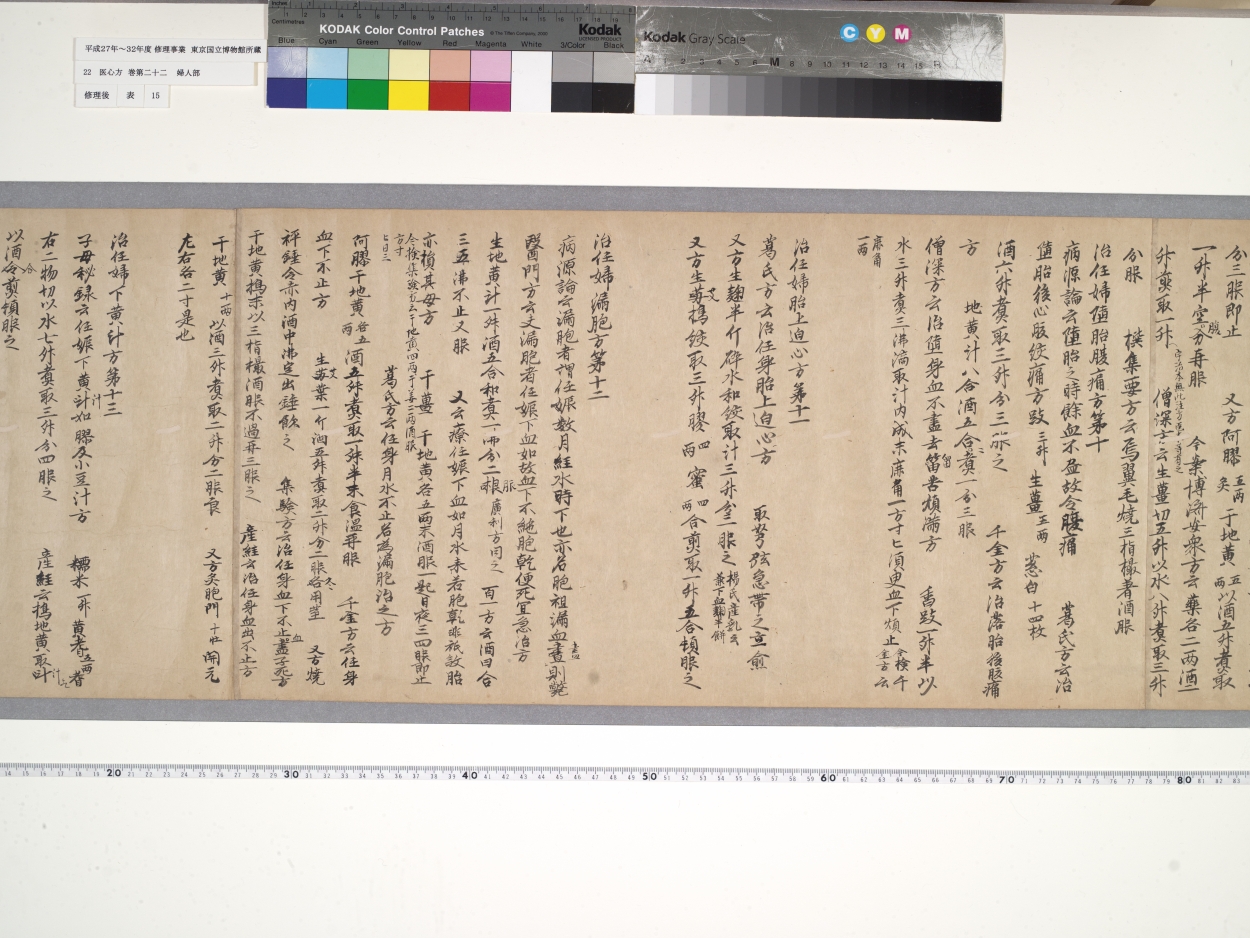 平成27年～32年度 修理事業 東京国立博物館所蔵
22 医心方 巻第二十二 婦人部
修理後 表 15
Inches
Centimetres
KODAK Color Control Patches
© The Tiffen Company, 2000
Kodak
LICENSED PRODUCT
Blue Cyan Green Yellow Red Magenta White 3/Color Black
Kodak Gray Scale
C Y M
A 1 2 3 4 5 6 M 8 9 10 11 12 13 14 15 B
分三服即止 又方阿膠五两炙 干地黄五两 以酒五升煮取
一升半空腹分再服 今案博済安衆方云藥各二两酒一
升煎取一升 僧深方云生薑切五升以水八升煮取三升
分服 撰集要方云烏翼毛焼三指撮着酒服
治任婦堕胎腹痛方第十
病源論云堕胎之時餘血不盡故令腹痛 葛氏方云治
堕胎後心腹絞痛方豉三升 生薑五两 葱白十四枚
酒六升煮取三升分三服之 千金方云治落胎後腹痛
方 地黄汁八合酒五合煮一分三服
僧深方云治堕身血不盡去留苦煩満方 香豉一升半以
水三升煮三沸滴取汁内成末鹿角一方寸匕須臾血下煩止 今検千金方云
鹿角一两
治任婦胎上迫心方第十一
葛氏方云治任身胎上迫心方 取弩弦急帯之立愈
又方生麹半斤碎水和絞取汁三升分二服之 楊氏産乱云兼下血麹半餅
又方生艾搗絞取三升膠四两 蜜四两 合煎取一升五合頓服之
治任婦漏胞方第十二
病源論云漏胞者謂任娠數月經水時下也亦名胞阻漏血盡則斃
醫門方云夫漏胞者任娠下血如故血下不絶胞乾便死宜急治方
生地黄汁一升酒五合和煮一沸分二服 廣利方同之 百一方云酒四合
三五沸不止又服 又云療任娠下血如月水来若胞乾非祇敎胎
亦損其母方 干薑 干地黄各五两末酒服一匙日夜三四服即止
今検集験方云干地黄四两干姜二两酒服
方寸匕日三
葛氏方云任身月水不止名為漏胞治之方
阿膠干地黄各五两 酒五升煮取一升半末食温再服 千金方云任身
血下不止方 生艾葉一斤酒五升煮取二升分二服冬用茎 又方焼
秤錘令赤内酒中沸定出錘飲之 集験方云治任身血下不止血盡子死方
干地黄搗末以三指撮酒服不過再三服之 産經云治任身血出不止方
干地黄十两 以酒三升煮取二升分二服良 又方灸胞門十壮 関元
左右各二寸是也
治任婦下黄汁方第十三
子母秘録云任娠下黄汁如膠及小豆汁方 糯米一升 黄耆五两
右二物切以水七升煮取三升分四服之 産經云搗地黄取汁
以酒合煎頓服之
20 30 40 50 60 70 80